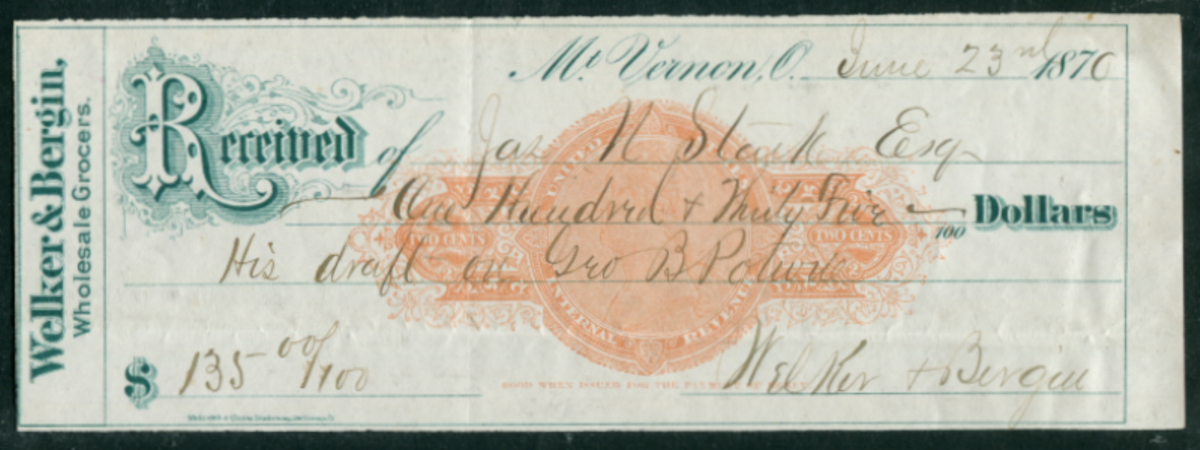 Welker & Bergin,
Wholesale Grocers.
Mt. Vernon, O. June 23rd 1870
Received of Jas N Stark Esq
One Hundred & Thirty Five 100 Dollars
His draft on Geo B Potwin
UNITED
TWO CENTS TWO CENTS
INTERNAL REVENUE
GOOD WHEN ISSUED FOR THE
$ 135 00/100 Welker & Bergin